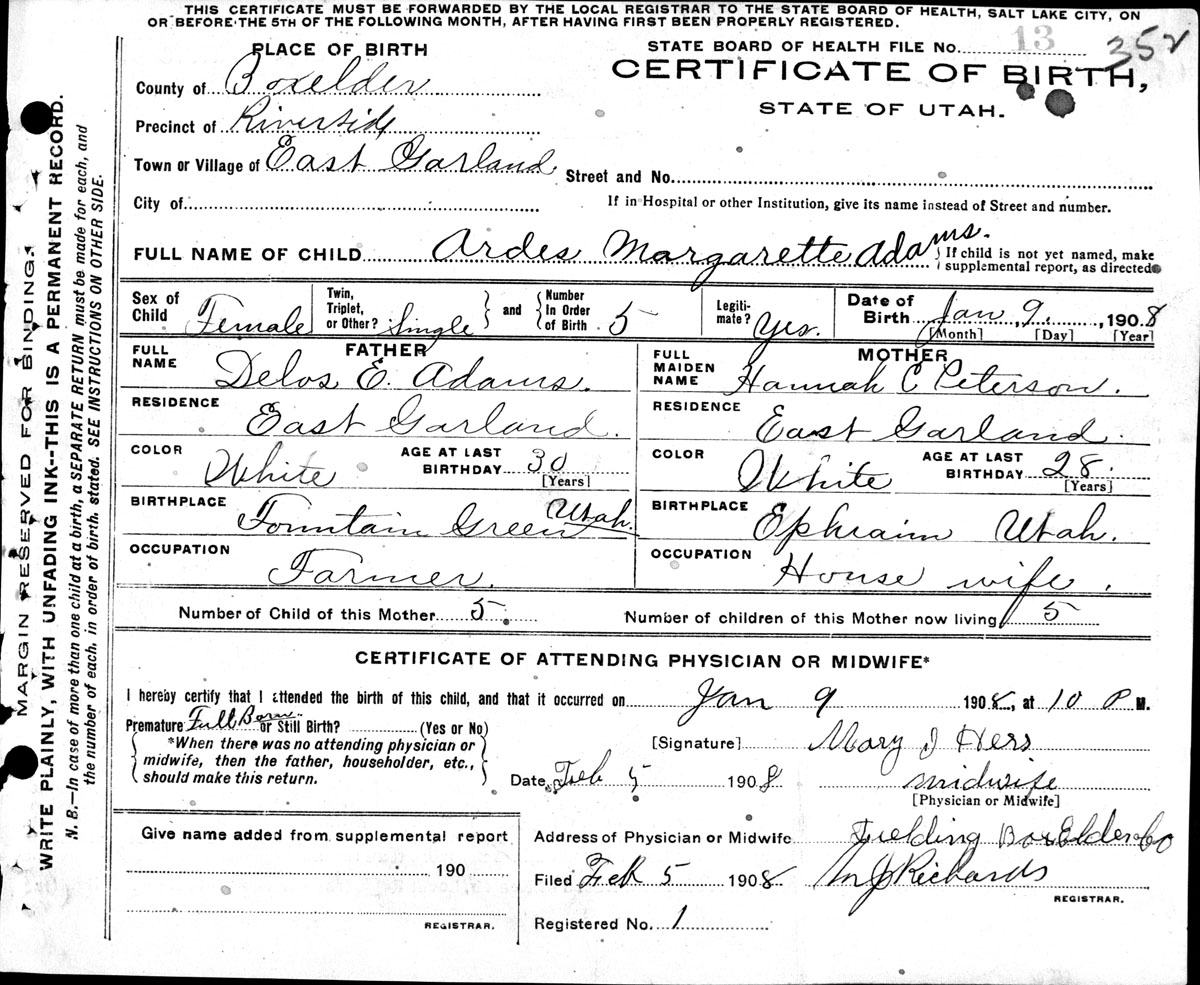 THIS CERTIFICATE MUST BE FORWARDED BY THE LOCAL REGISTRAR TO THE STATE BOARD OF HEALTH, SALT LAKE CITY, ON
OR BEFORE THE 5TH OF THE FOLLOWING MONTH, AFTER HAVING FIRST BEEN PROPERLY REGISTERED.
MARGIN RESERVED FOR BINDING.
WRITE PLAINLY, WITH UNFADING INK--THIS IS A PERMANENT RECORD.
N. B.—In case of more than one child at a birth, a SEPARATE RETURN must be made for each, and
the number of each, in order of birth, stated. SEE INSTRUCTIONS ON OTHER SIDE.
PLACE OF BIRTH
STATE BOARD OF HEALTH FILE No. 13 352
County of Boxelder
CERTIFICATE OF BIRTH,
STATE OF UTAH.
Precinct of Riverside
Town or Village of East Garland
Street and No.
City of
If in Hospital or other Institution, give its name instead of Street and number.
FULL NAME OF CHILD Ardes Margarette Adams.
If child is not yet named, make
supplemental report, as directed
Sex of
Child Female
Twin,
Triplet,
or Other? Single
and
Number
In Order
of Birth 5
Legiti-
mate? Yes.
Date of
Birth Jan 9. , 1908
[Month] [Day] [Year]
FATHER
FULL
NAME Delos E. Adams.
RESIDENCE
East Garland.
COLOR
White
AGE AT LAST
BIRTHDAY 30
[Years]
BIRTHPLACE
Fountain Green Utah.
OCCUPATION
Farmer.
MOTHER
FULL
MAIDEN
NAME Hannah C Peterson.
RESIDENCE
East Garland.
COLOR
White
AGE AT LAST
BIRTHDAY 28.
[Years]
BIRTHPLACE
Ephraim Utah.
OCCUPATION
House wife.
Number of Child of this Mother 5
Number of children of this Mother now living 5
CERTIFICATE OF ATTENDING PHYSICIAN OR MIDWIFE*
I hereby certify that I attended the birth of this child, and that it occurred on Jan 9 1908, at 10 P M.
Premature Full Born or Still Birth? (Yes or No)
*When there was no attending physician or
midwife, then the father, householder, etc.,
should make this return.
[Signature] Mary J
Date Feb 5 1908
midwife
[Physician or Midwife]
Give name added from supplemental report
190
REGISTRAR.
Address of Physician or Midwife Fielding Box Elder Co
Filed Feb 5 1908 Richards
REGISTRAR.
Registered No. 1